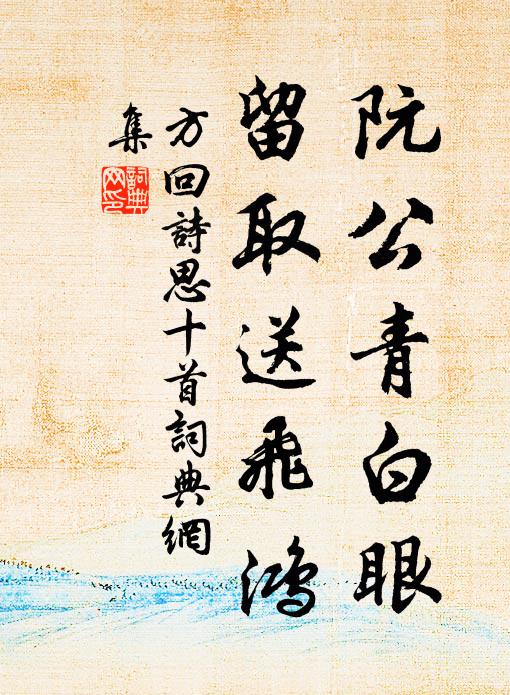 阮公青白眼
留取送飛鴻
方回詩思十首詞典網
集
詞典網印